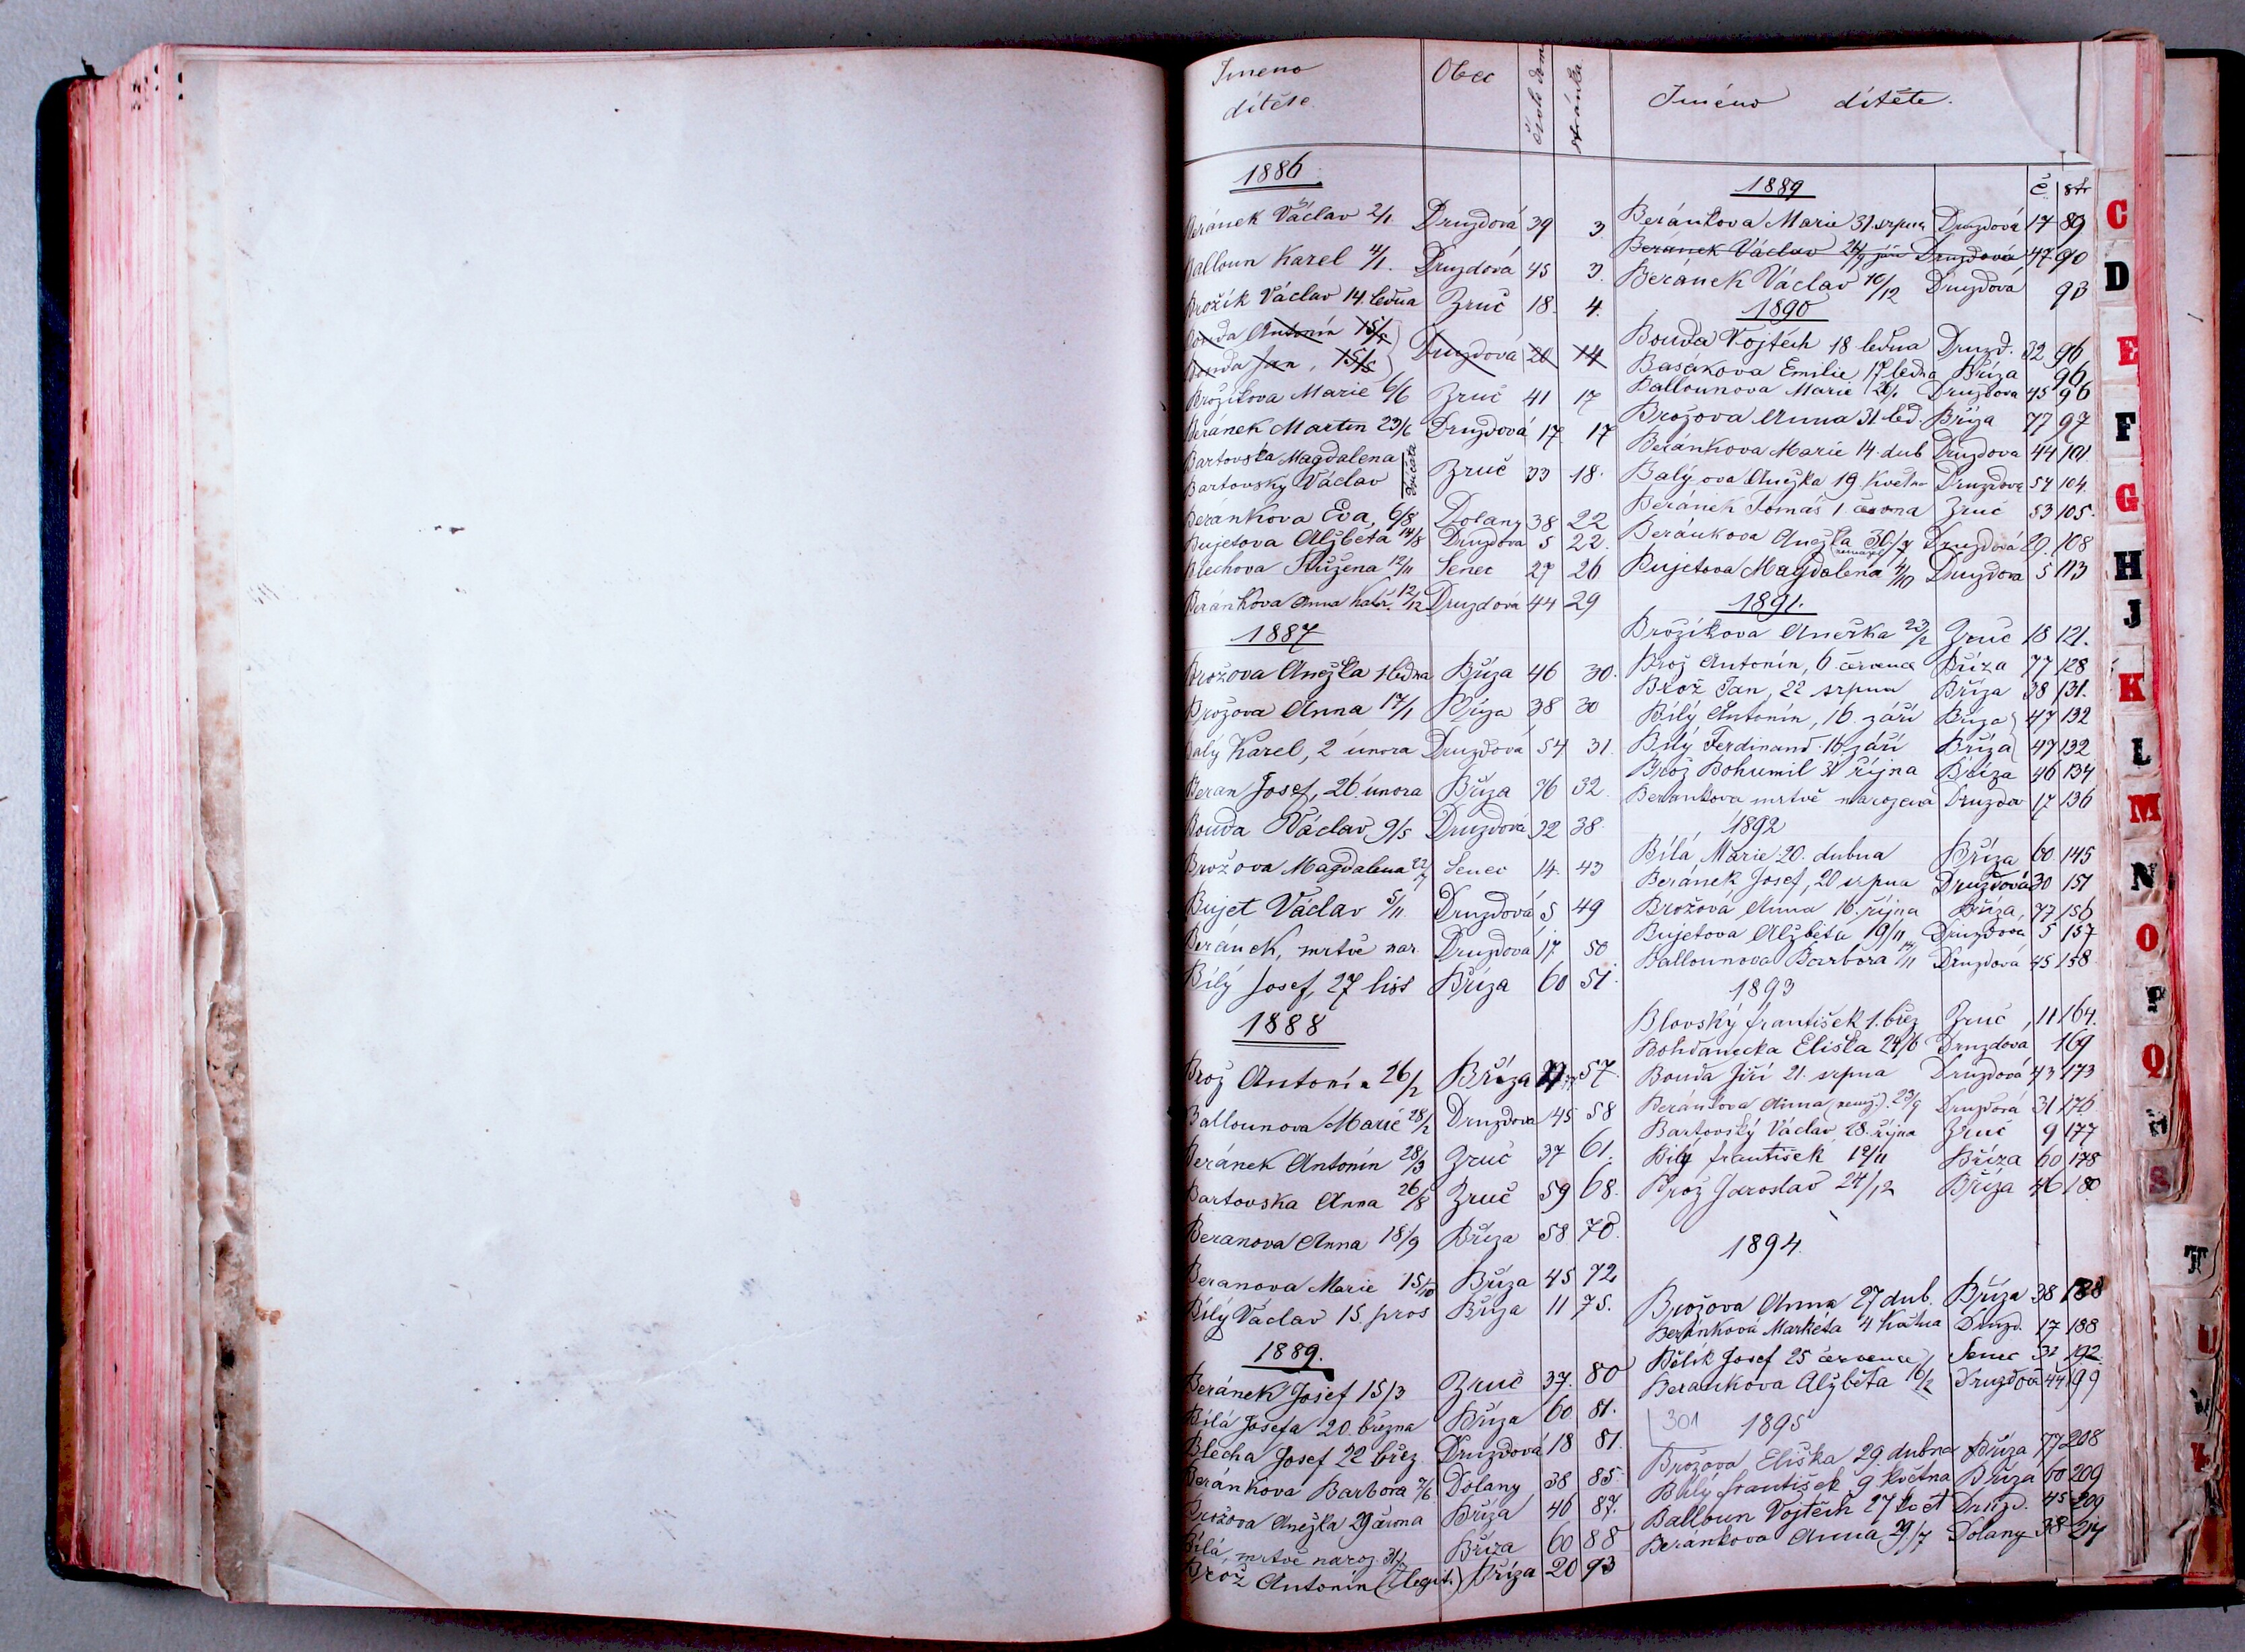 Jmeno dítěte Obec číslo domu stránka
1886.
Beránek Václav 2/1 Druzdová 39 3
Balloun Karel 4/1. Druzdová 45 3.
Brožík Václav 14. ledna Zruč 18. 4.
Bouda Antonín 15/5
Bouda Jan, 15/5 Druzdová 20 14
Brožíkova Marie 6/6 Zruč 41 17
Beránek Martin 23/6 Druzdová 17 17
Bartovska Magdalena
Bartovsky Václav dvojčata Zruč 33 18.
Beránkova Eva, 6/8 Dolany 38 22
Bujetova Alžběta 14/8 Druzdova 5 22.
Blechova Růžena 12/11 Senec 27 26
Beránkova Anna 12/12 Druzdová 44 29
1887
Brožova Anežka 1 ledna Bříza 46 30.
Brožova Anna 17/1 Bříza 38 30
Balý Karel, 2 února Druzdová 54 31.
Beran Josef, 26. února Bříza 76 32.
Bouda Václav 9/5 Druzdová 32 38.
Brožova Magdalena 22/7 Senec 14. 43
Bujet Václav 5/11. Druzdová 5 49
Beránek, mrtvě nar. Druzdova 17 50
Bílý Josef, 27 list Bříza 60 51.
1888
Brož Antonín 26/2 Bříza 77 57.
Ballounova Marie 28/2 Druzdova 45 58
Beránek Antonín 28/3 Zruč 37 61.
Bartovska Anna 26/8 Zruč 59 68.
Beranova Anna 18/9 Bříza 58 70.
Beranova Marie 15/10 Bříza 45 72
Bílý Václav 15. pros Bříza 11 75.
1889.
Beránek Josef 15/3 Zruč 37. 80
Bílá Josefa 20. března Bříza 60 81.
Blecha Josef 22 břez. Druzdová 18 81.
Beránkova Barbora 7/6. Dolany 38 85.
Brožova Anežka 29 června Bříza 46 87.
Bílá, mrtvě naroz. 31/7 Bříza 60 88
Brož Antonín (Ilegit.) Bříza 20 93
Jméno dítěte.
1889 č str
Beránkova Marie 31. srpna Druzdová 17 89
Beránek Václav 24/9 září Druzdová 47 90
Beránek Václav 10/12 Druzdová 93
1890
Bouda Vojtěch 18 ledna Druzd. 32 96
Basákova Emilie 17 ledna Bříza 96
Ballounova Marie 26/1 Druzdova 45 96
Brožova Anna 31. led. Bříza 77 97
Beránkova Marie 14. dub Druzdova 44 101.
Balý ova Anežka 19. května Druzdova 54 104.
Beránek Tomáš 1 června Zruč 53 105.
Beránkova Anežka 30/7 Druzdová 29. 108
Bujetova Magdalena 4/10 Druzdova 5 113
1891.
Brožíkova Anežka 23/2 Zruč 18 121.
Brož Antonín, 6. července Bříza 77 128
Brož Jan, 22 srpna Bříza 38 131.
Bílý Antonín, 16. září Bříza 47 132
Bílý Ferdinand. 16. září Bříza 47 132
Brož Bohumil 31 října Bříza 46 134
Berankova mrtvě narozena Druzdov 17 136
1892
Bílá, Marie 20. dubna Bříza 60. 145
Beránek Josef, 20 srpna Druzdová 30 151
Brožová Anna 16. října Bříza, 77 156
Bujetova Alžběta 19/11 Druzdova 5 157
Ballounova Barbora 14/11 Druzdová 45 158
1893
Blovský františek 1. břez Zruč, 11 164.
Bohdanecka Eliška 24/6 Druzdova 169
Bouda Jiří 21. srpna Druzdová 43 173
Beránkova Anna (nemž.) 23/9 Druzdová 31 176
Bartovský Václav 28. října Zruč 9 177
Bílý františek 12/11 Bříza 60 178
Brož Jaroslav 24/12 Bříza 46 180
1894.
Brožova Anna 27 dub. Bříza 38 188
Beránková Markéta 4 května Druzd. 17 188
Bělík Josef 25 července Senec 32 192.
Berankova Alžběta 16/12 Druzdová 44 199
301 1895
Brožova Eliška 29. dubna Bříza 77 208
Bílý františek 9. května Bříza 60 209
Balloun Vojtěch 27 květ Druzd. 45 209
Beránkova Anna 29/7 Dolany 38 214
C
D
E
F
G
H
J
K
L
M
N
O
P
Q
R
S
T
U